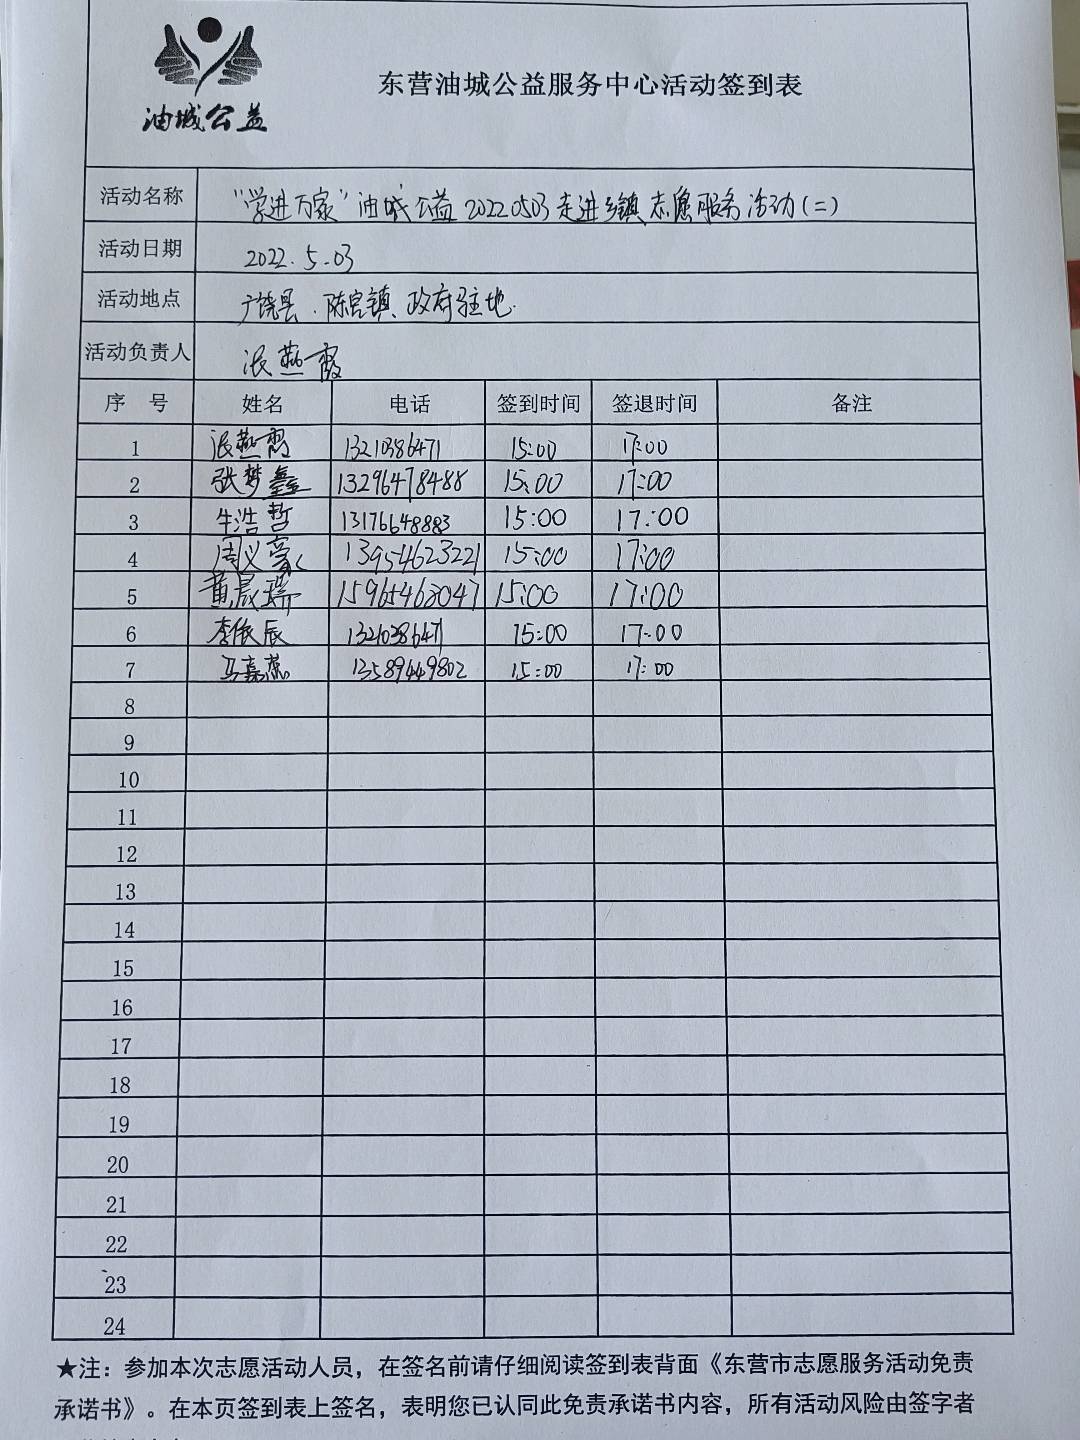 油城公益
东营油城公益服务中心活动签到表
活动名称 “学进万家”油城公益20220503走进乡镇志愿服务活动(二)
活动日期 2022.5.03
活动地点 广饶县.陈官镇、政府驻地.
活动负责人 张燕霞
序 号 姓名 电话 签到时间 签退时间 备注
1 张燕霞 13210386471 15:00 17:00
2 张梦鑫 13296478488 15:00 17:00
3 牛浩哲 13176648883 15:00 17:00
4 周义豪 13954623221 15:00 17:00
5 黄晟瑞 15965462047 15:00 17:00
6 李依辰 13210386471 15:00 17:00
7 马嘉 13589449802 15:00 17:00
8
9
10
11
12
13
14
15
16
17
18
19
20
21
22
23
24
★注：参加本次志愿活动人员，在签名前请仔细阅读签到表背面《东营市志愿服务活动免责
承诺书》。在本页签到表上签名，表明您已认同此免责承诺书内容，所有活动风险由签字者